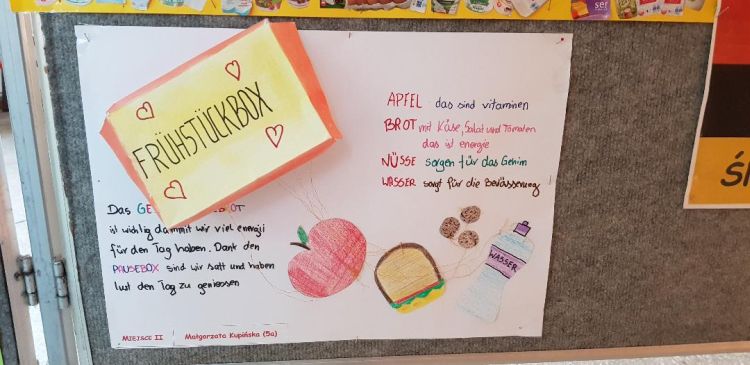 FRÜHSTÜCKBOX
APFEL das sind vitaminen
BROT mit Käse, Salat und Tomaten
das ist energie
NÜSSE sorgen für das Gehirn
WASSER sorgt für die Bewässerung
Das GE
ist wichtig dammit wir viel energii
für den Tag haben. Dank den
PAUSEBOX sind wir satt und haben
lust den Tag zu geniessen
WASSER
MIEJSCE II / Małgorzata Kupińska (5a)